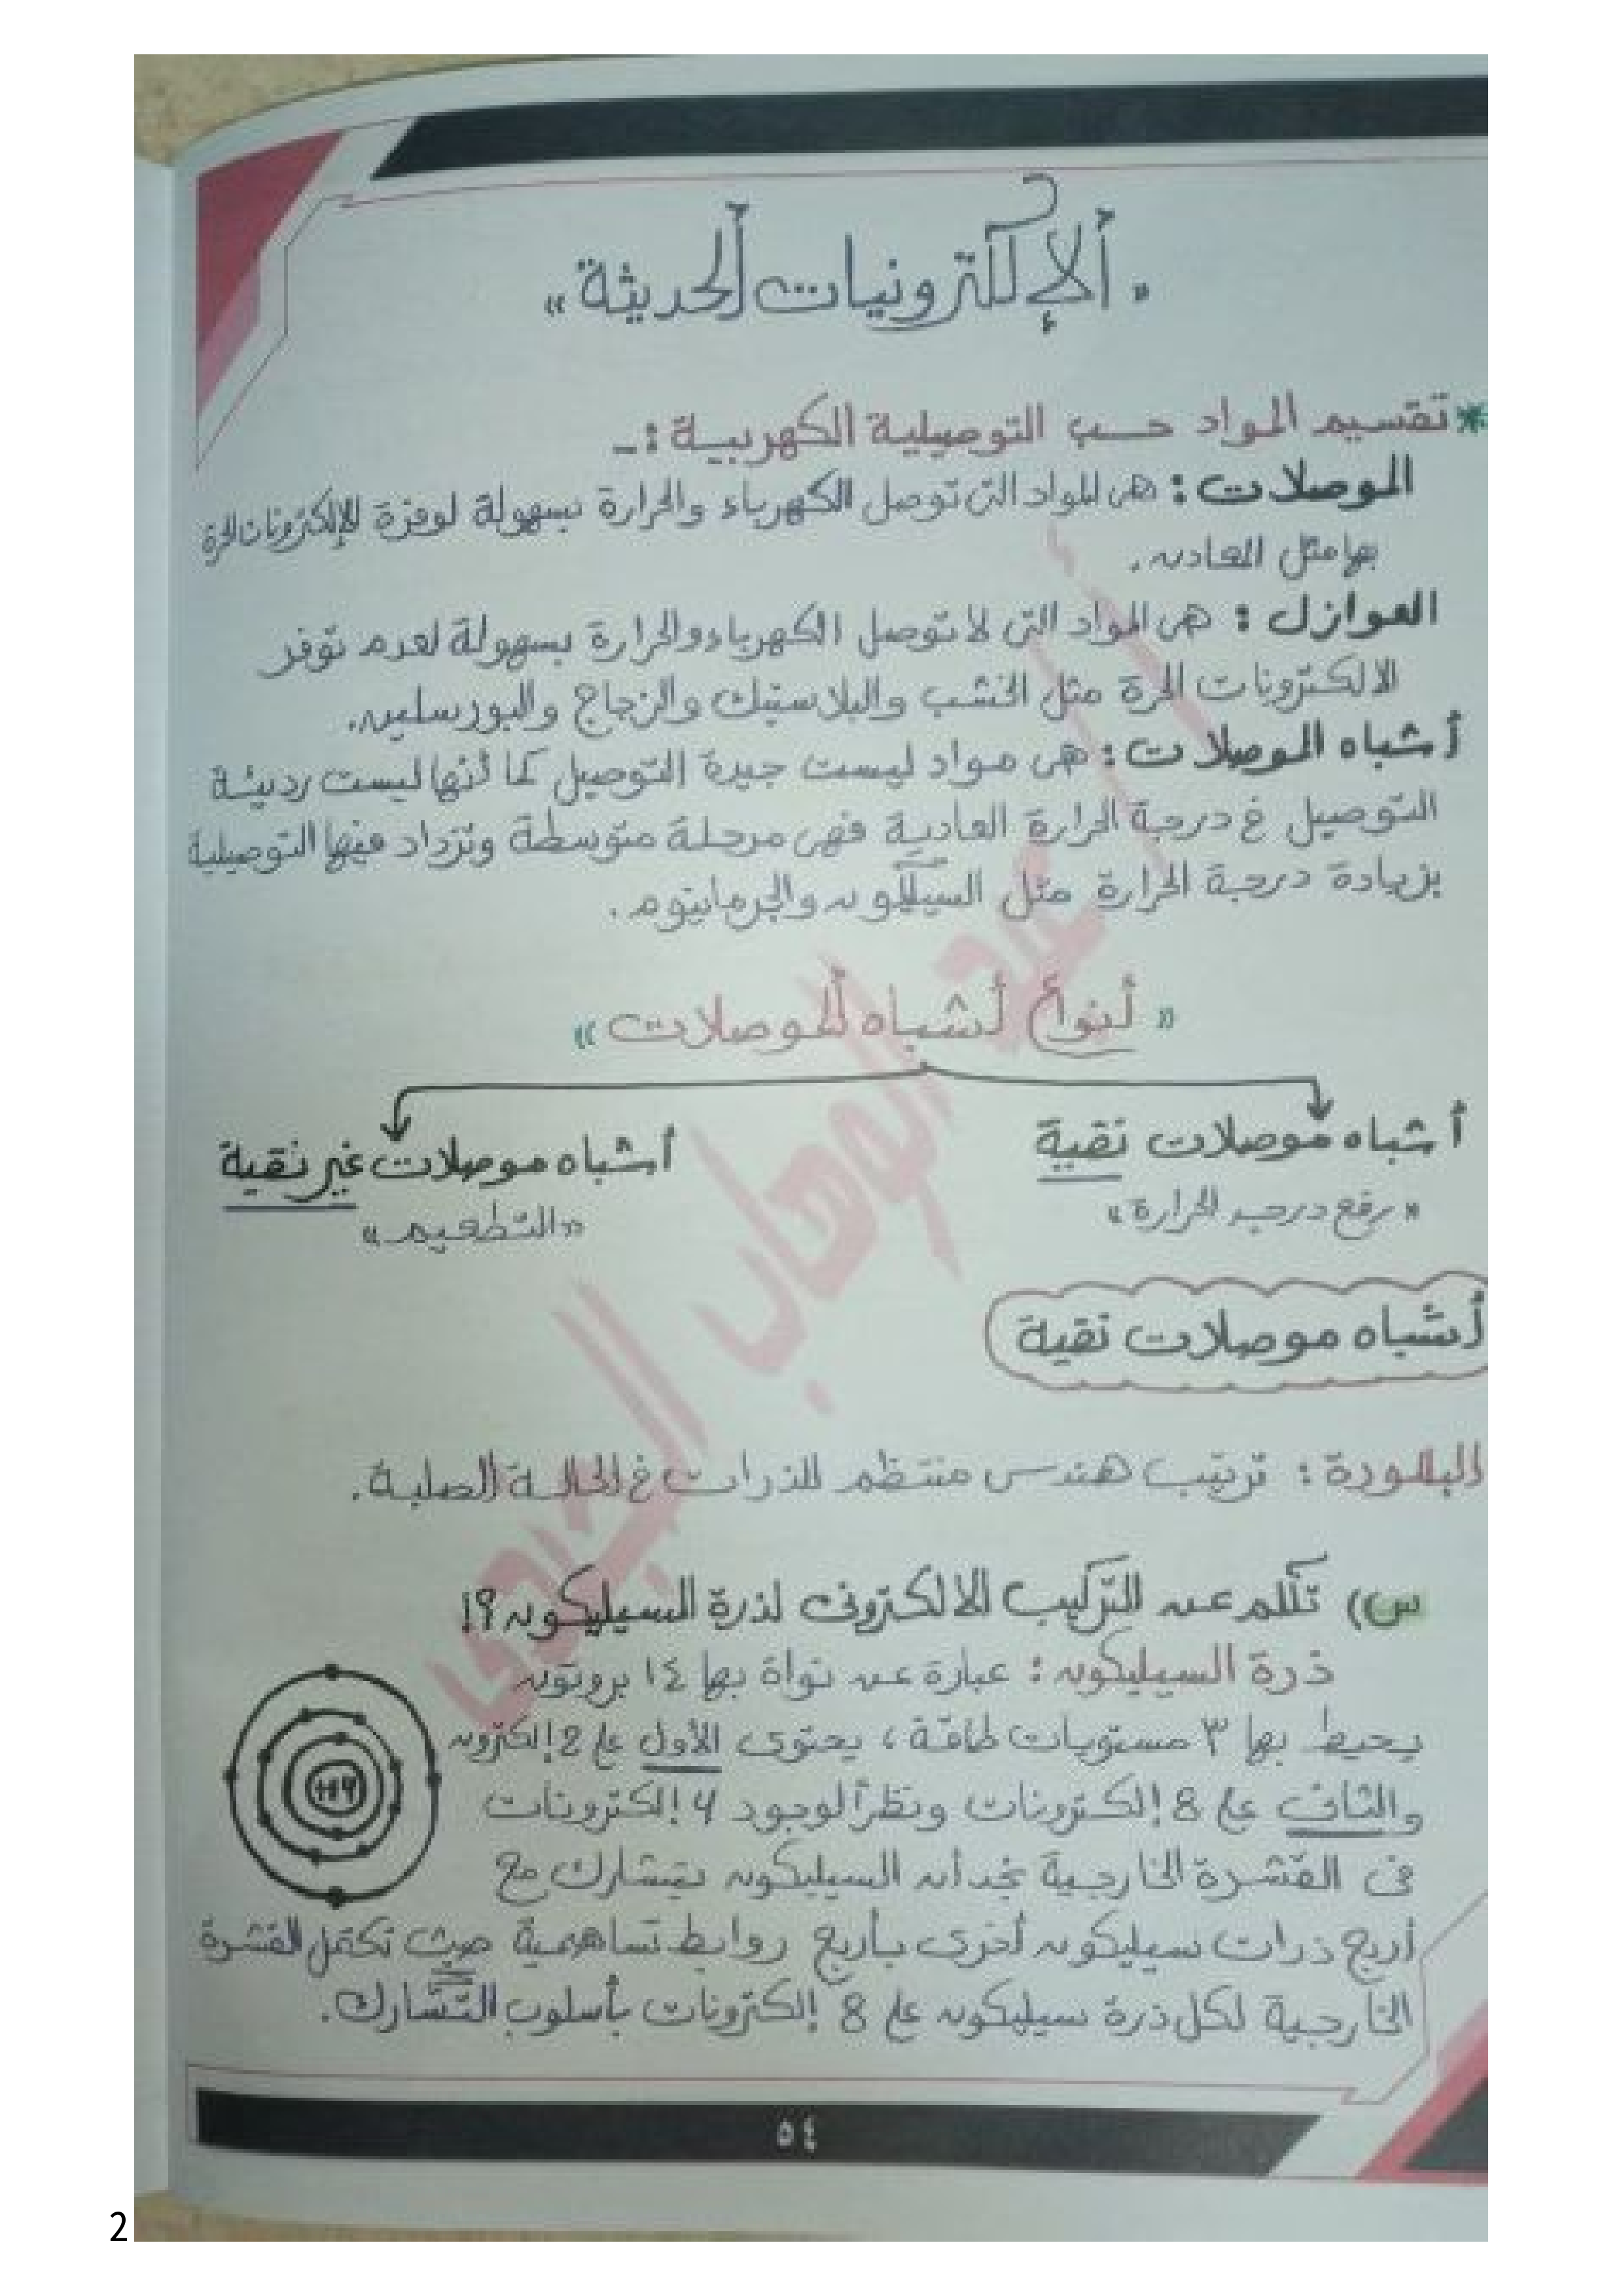 « الإلكترونيات الحديثة »
* تقسيم المواد حسب التوصيلية الكهربية :-
الموصلات : هى المواد التى توصل الكهرباء والحرارة بسهولة لوفرة الإلكترونات الحرة
بها مثل المعادن .
العوازل : هى المواد التى لا توصل الكهرباء والحرارة بسهولة لعدم توفر
الالكترونات الحرة مثل الخشب والبلاستيك والزجاج والبورسلين.
أشباه الموصلات : هى مواد ليست جيدة التوصيل كما أنها ليست رديئة
التوصيل فى درجة الحرارة العادية فهى مرحلة متوسطة وتزداد فيها التوصيلية
بزيادة درجة الحرارة مثل السيليكون والجرمانيوم .
« أنواع أشباه الموصلات »
أشباه موصلات نقية
أشباه موصلات غير نقية
« رفع درجة الحرارة »
«التطعيم»
أشباه موصلات نقية
البللورة : ترتيب هندسى منتظم للذرات فى الحالة الصلبة .
س) تكلم عن التركيب الالكترونى لذرة السيليكون ؟!
ذرة السيليكون : عبارة عن نواة بها ١٤ بروتون
يحيط بها ٣ مستويات طاقة ، يحتوى الأول على 2 إلكترون
والثانى على 8 إلكترونات ونظراً لوجود 4 إلكترونات
فى القشرة الخارجية نجد أن السيليكون يتشارك مع
أربع ذرات سيليكون أخرى بأربع روابط تساهمية حيث تكتمل القشرة
الخارجية لكل ذرة سيليكون على 8 إلكترونات بأسلوب التشارك.
+14
عبد الوهاب
٥٤
2